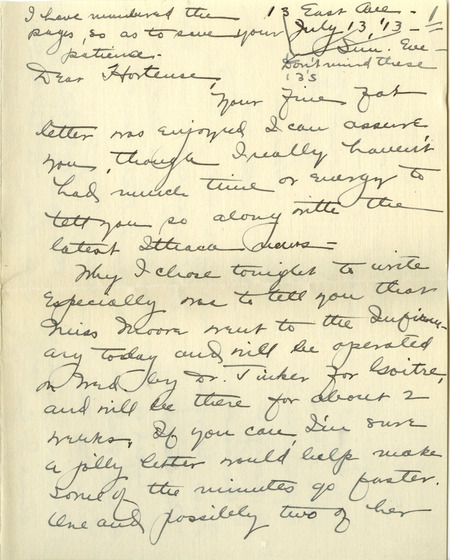 I have numbered the
pages, so as to save your
patience.
13 East Ave - 1
July 13, '13 -
Sun. Eve -
Don't mind these
13's
Dear Hortense,
Your fine, fat
letter was enjoyed I can assure
you, though I really haven't
had much time or energy to
tell you so along with the
latest Ithaca news -
Why I chose tonight to write
especially was to tell you that
Miss Moore went to the Infirm-
ary today and will be operated
on Wed. by Dr. Tinker for Goitre,
and will be there for about 2
weeks. If you can, I'm sure
a jolly letter would help make
some of the minutes go faster.
One and possibly two of her